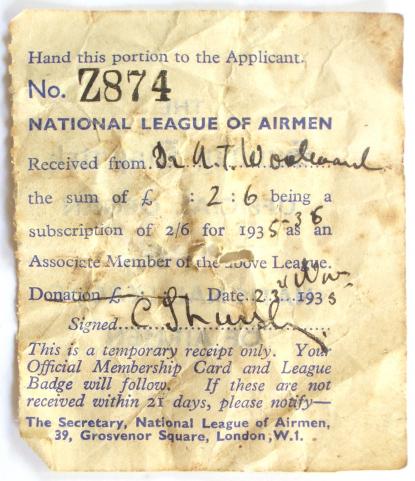 Hand this portion to the Applicant.
No. Z874
NATIONAL LEAGUE OF AIRMEN
Received from Dr A. T. Woodward
the sum of £ : 2 : 6 being a
subscription of 2/6 for 1935-36 as an
Associate Member of the above League.
Donation £ Date 23rd Nov 1935
Signed
This is a temporary receipt only. Your
Official Membership Card and League
Badge will follow. If these are not
received within 21 days, please notify—
The Secretary, National League of Airmen,
39, Grosvenor Square, London, W.1.